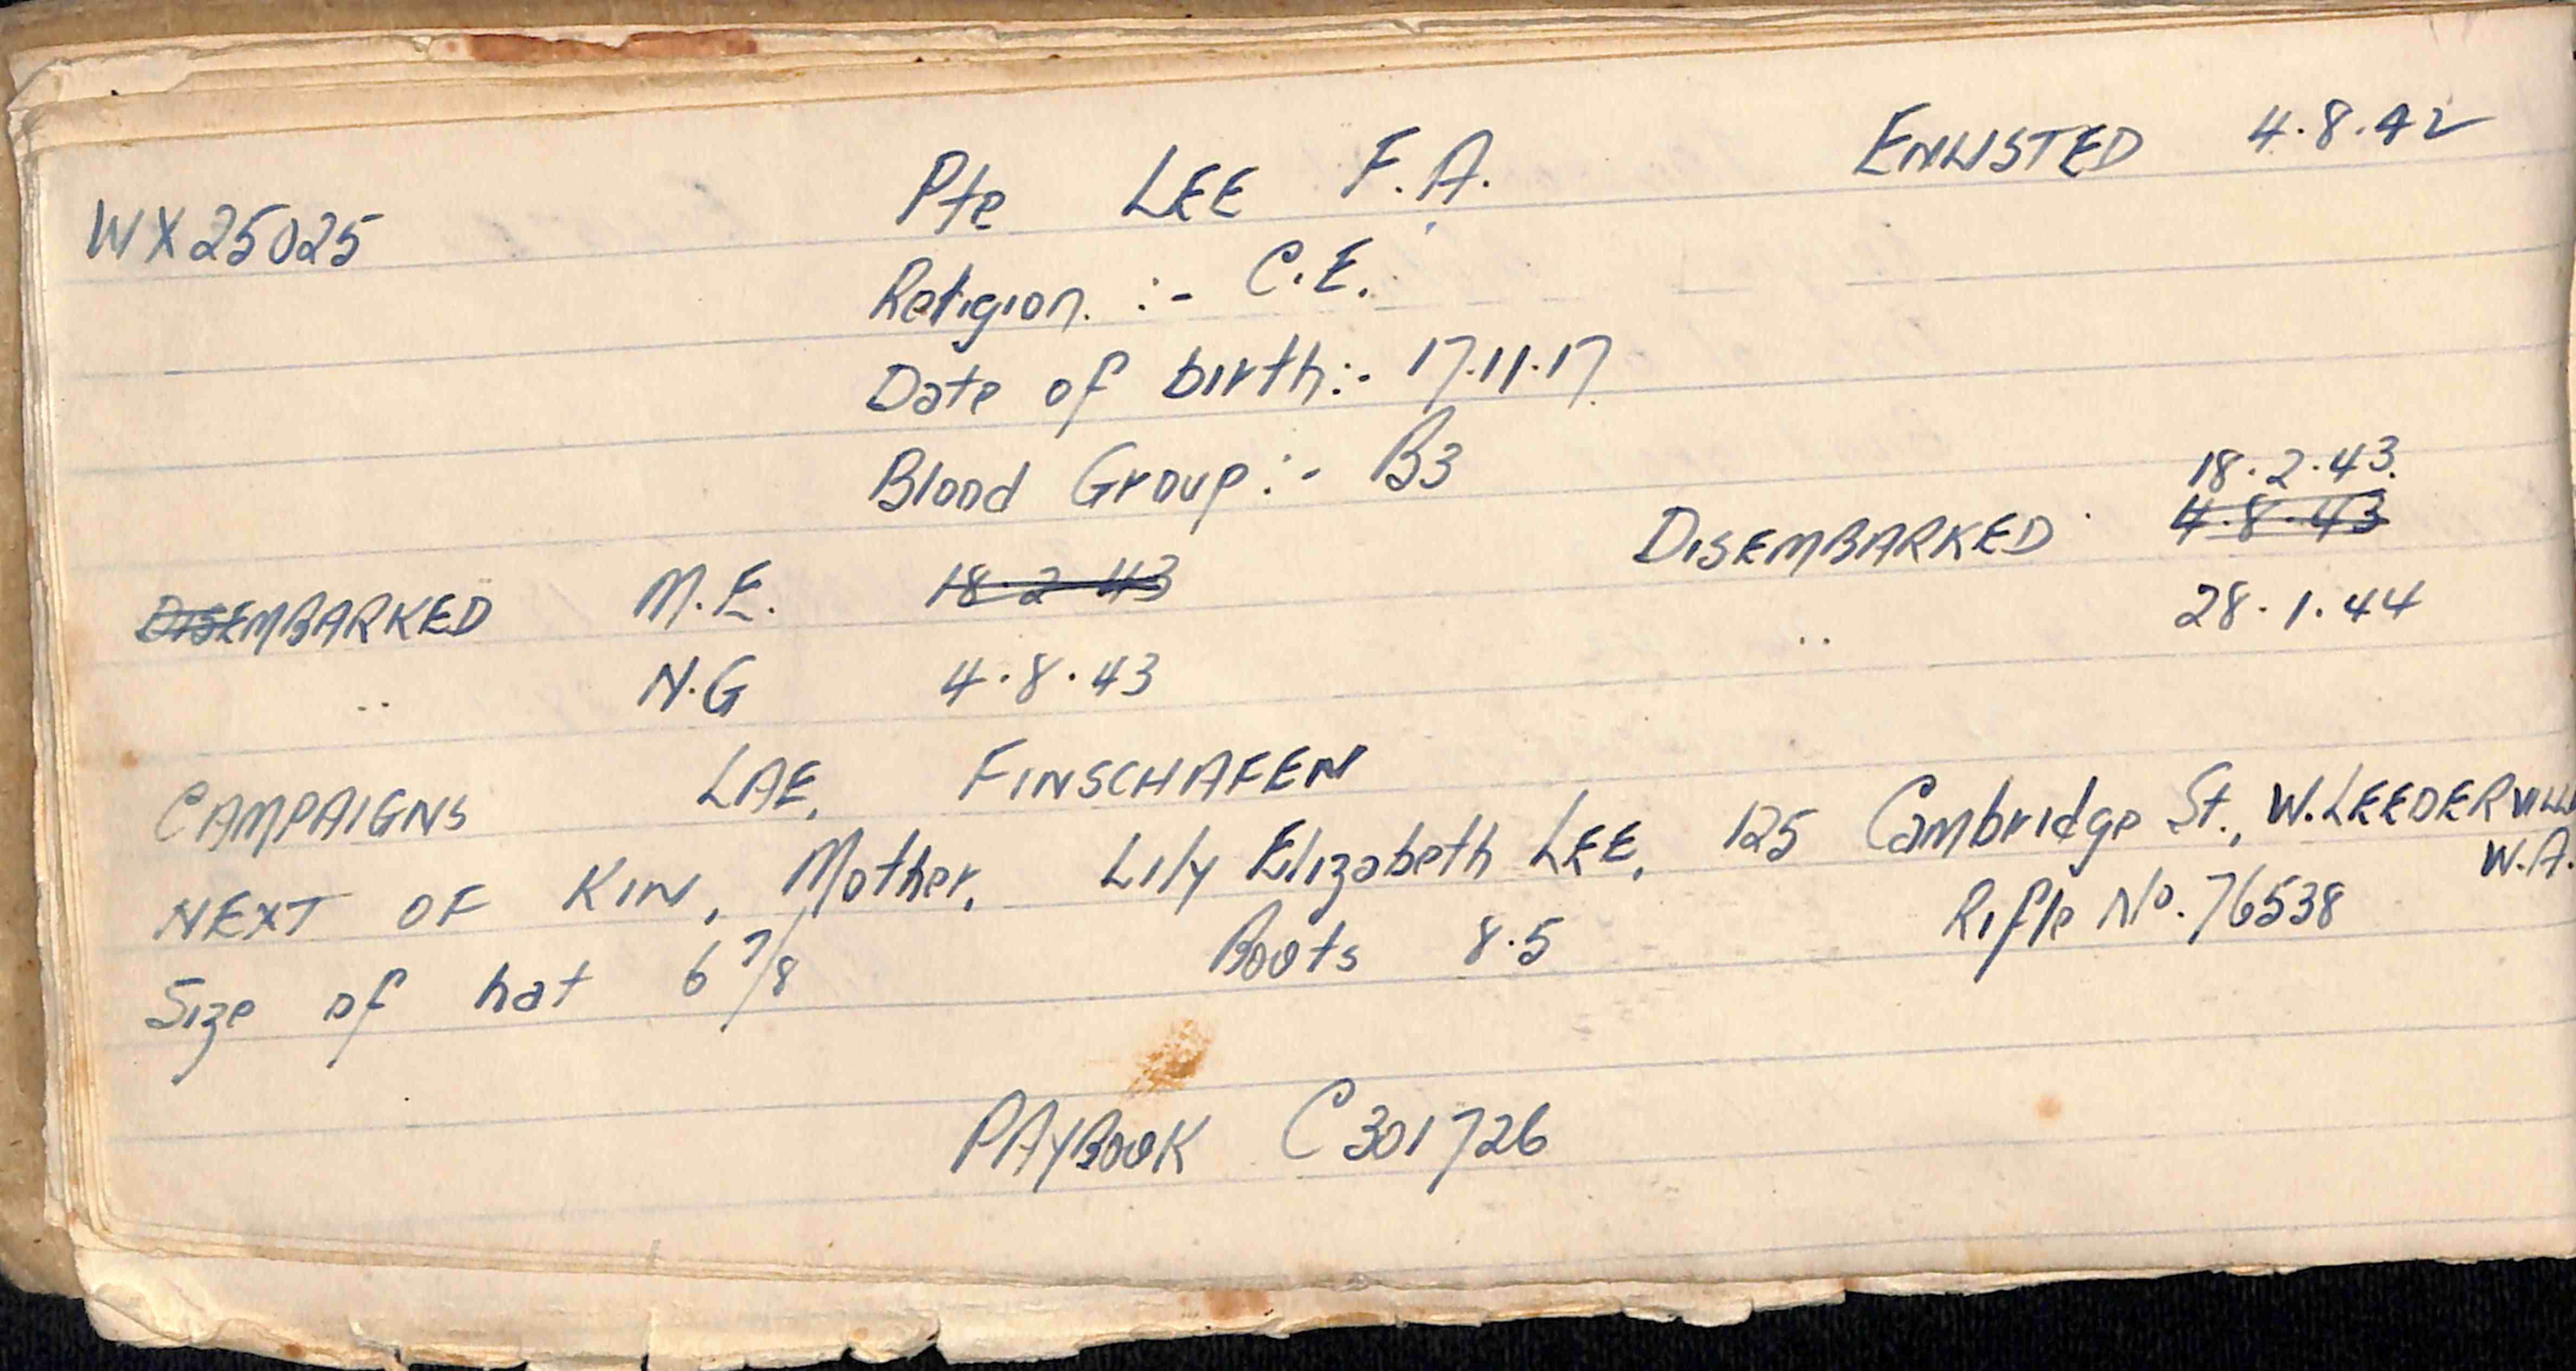 WX25025 Pte LEE F.A. ENLISTED 4.8.42
Religion. :- C.E.
Date of birth:- 17.11.17
Blood Group:- B3
18.2.43.
DISEMBARKED M.E. 18.2.43 DISEMBARKED 4.8.43
.. N.G 4.8.43 .. 28.1.44
CAMPAIGNS LAE, FINSCHAFEN
NEXT OF KIN, Mother, Lily Elizabeth LEE, 125 Cambridge St., W.LEEDERVILLE
W.A.
Size of hat 6 7/8 Boots 8.5 Rifle No. 76538
PAYBOOK C301726